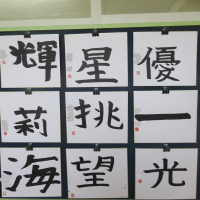 輝 星 優
莉 挑 一
海 望 光